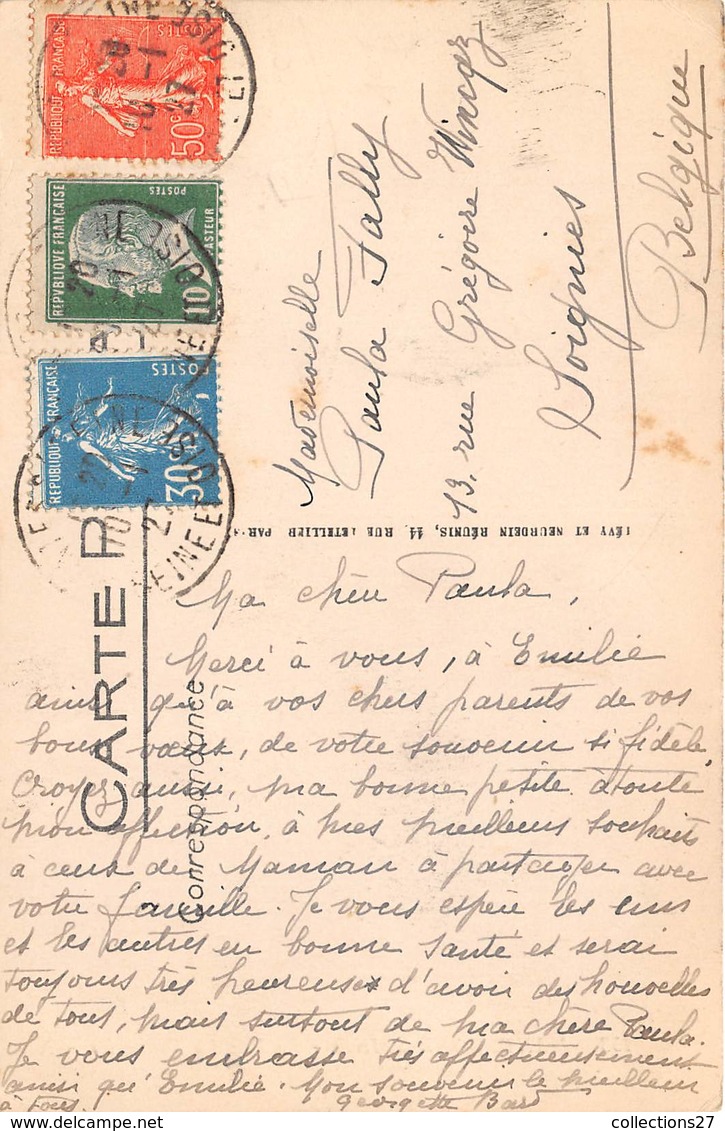 RÉPUBLIQUE FRANÇAISE
POSTES
50c
REPVBLIQVE FRANÇAISE
POSTES
PASTEUR
10
REPUBLIQUE FRANÇAISE
POSTES
30
CARTE P
Correspondance
LÉVY ET NEURDEIN RÉUNIS, 44, RUE LETELLIER PARIS
Mademoiselle
Paula Fally
13, rue Grégoire Wincqz
Soignies
Belgique
Ma chère Paula,
Merci à vous, à Emilie
ainsi qu'à vos chers parents de vos
bons vœux, de votre souvenir si fidèle.
Croyez aussi, ma bonne petite à toute
mon affection, à mes meilleurs souhaits
à ceux de Maman à partager avec
votre famille. Je vous espère les uns
et les autres en bonne santé et serai
toujours très heureuse d'avoir des nouvelles
de tous, mais surtout de ma chère Paula.
Je vous embrasse très affectueusement
ainsi qu'Emilie. Mon souvenir le meilleur
à tous. Georgette
www.delcampe.net
collections27